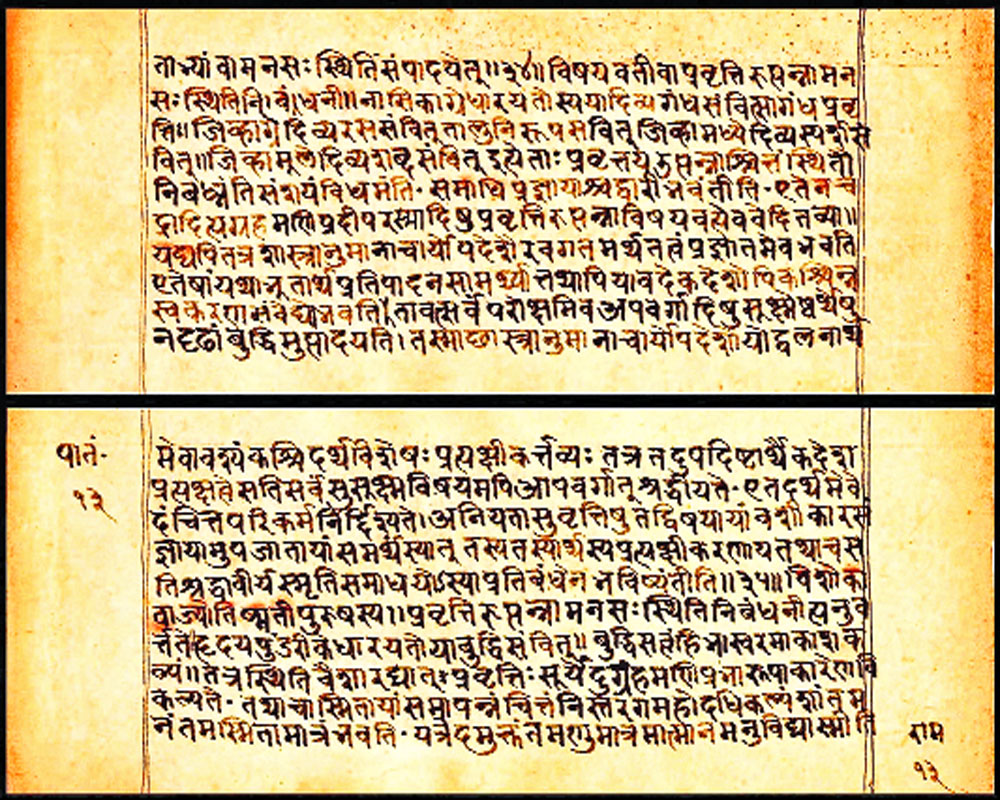 ताभ्यां वा मनसः स्थितिं संपादयेत्॥३४॥ विषयवती वा प्रवृत्तिरुत्पन्ना मन
सः स्थितिनिबंधनी॥ नासिकाग्रे धारयतो स्य या दिव्यगंधसंवित्सा गंधप्रवृ
त्तिः॥ जिव्हाग्रे दिव्यरससंवित् तालुनि रूपसंवित् जिव्हामध्ये दिव्यस्पर्शसं
वित्॥ जिव्हामूले दिव्यशब्दसंवित् इत्येताः प्रवृत्तय उत्पन्नाश्चित्तं स्थितौ
निबध्नंति संशयं विधमंति· समाधिप्रज्ञायाश्च द्वारीभवंतीति· एतेन च
द्रादित्यग्रहमणिप्रदीपरस्मादिषु प्रवृत्तिरुत्पन्ना विषयवत्येव वेदितव्या॥
यद्यपि तत्र शास्त्रानुमानाचार्योपदेशैरवगतमर्थतत्वं प्रज्ञातमेव भवति
एतेषां यथानुतार्थप्रतिपादनसामर्थ्यात् तथापि यावदेकदेशोपि कश्चिन्न
स्वकरणसंवेद्यो भवति। तावत्सर्वं परोक्षमिव अपवर्गादिषु सूक्ष्मेष्वर्थेषु
न दृढां बुद्धिमुत्पादयति। तस्माछास्त्रानुमानाचार्योपदेशोपोद्बलनार्थ
पातं·
१३
मेवावश्यं कश्चिदर्थविशेषः प्रत्यक्षीकर्त्तव्यः तत्र तदुपदिष्टार्थैकदेश
प्रत्यक्षत्वे सति सर्वं सुसूक्ष्मविषयमपि आपवर्गात् श्रद्धीयते· एतदर्थमेवे
दं चित्तपरिकर्म निर्द्दिश्यते। अनियतासु वृत्तिषु तद्विषयायां वशीकारसं
ज्ञायामुपजातायां समर्थं स्यात् तस्य तस्यार्थस्य प्रत्यक्षीकरणाय तथा च स
ति श्रद्धावीर्यस्मृतिसमाधयोऽस्याप्रतिबंधेन भविष्यंतीति॥३५॥ विशोका
वा ज्योतिष्मती पुरुषस्य॥ प्रवृत्तिरुत्पन्ना मनसः स्थितिनिबंधनीत्यनुव
र्त्तते हृदयपुंडरीके धारयतो या बुद्धिसंवित्॥ बुद्धिसत्वं हि भास्वरमाकाशक
ल्पं॥ तत्र स्थितिवैशारद्यात् प्रवृत्तिः सूर्येंदुग्रहमणिप्रभारूपाकारेण वि
कल्पते· तथाचास्मितायां समापन्नं चित्तं निस्तरंगमहोदधिकल्पं शांतम
नंतमस्मितामात्रं भवति· यत्रेदमुक्तं तमणुमात्रमात्मानमनुविद्यास्मीति
राम
१३